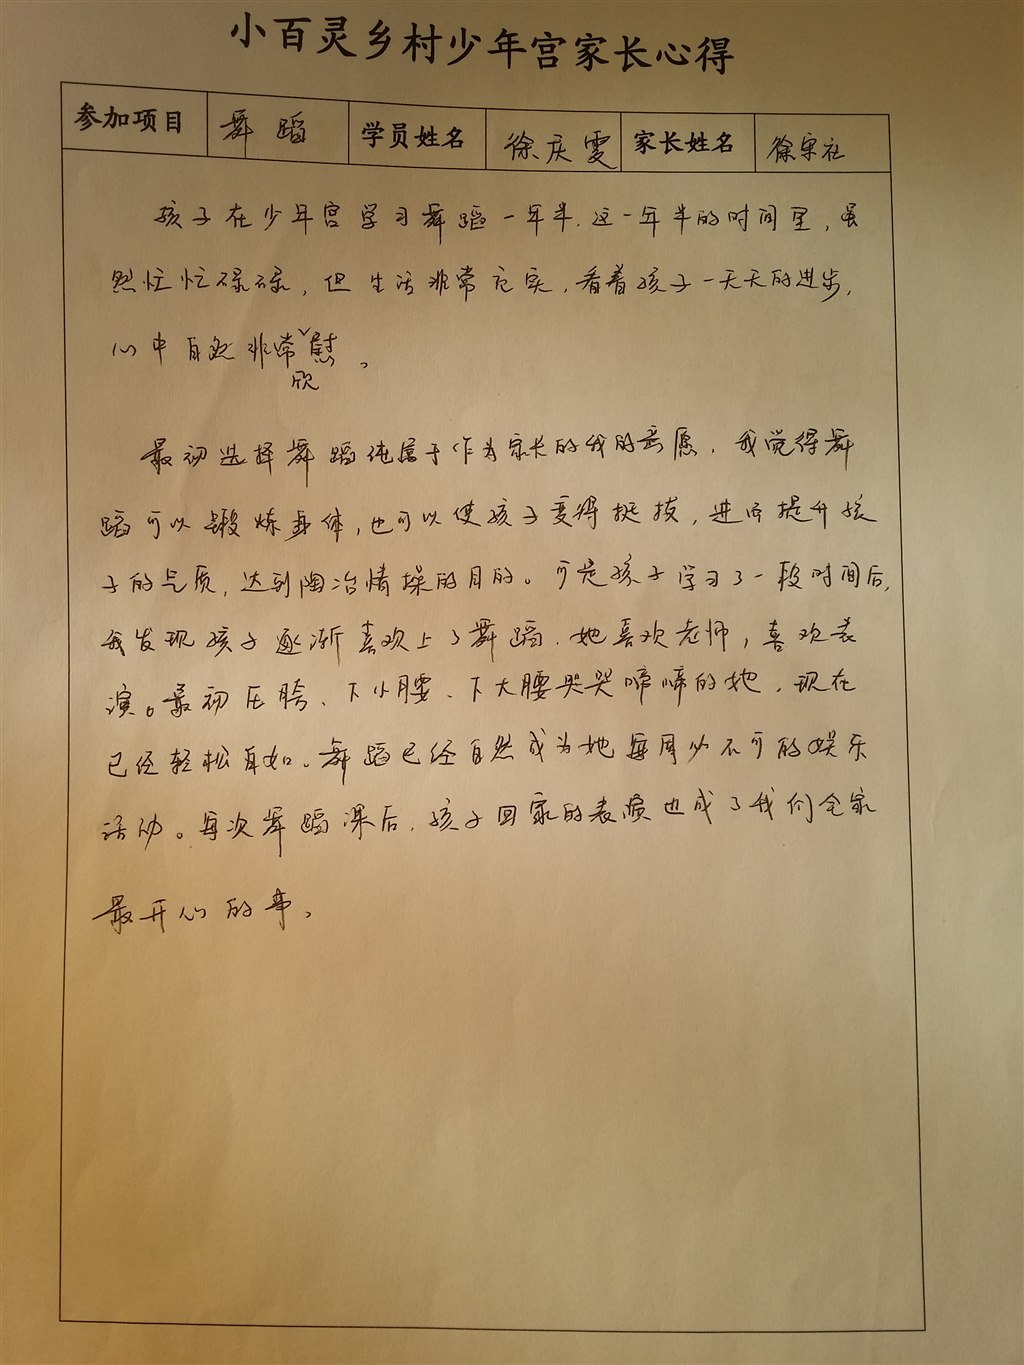 小百灵乡村少年宫家长心得
参加项目 舞蹈 学员姓名 徐庆雯 家长姓名 徐宗社
孩子在少年宫学习舞蹈一年半.这一年半的时间里，虽
然忙忙碌碌，但生活非常充实，看着孩子一天天的进步，
心中自然非常欣慰。
最初选择舞蹈纯属于作为家长的我的意愿，我觉得舞
蹈可以锻炼身体，也可以使孩子变得挺拔，进而提升孩
子的气质，达到陶冶情操的目的。可是孩子学习了一段时间后，
我发现孩子逐渐喜欢上了舞蹈.她喜欢老师，喜欢表
演。最初压胯、下小腰、下大腰哭哭啼啼的她，现在
已经轻松自如。舞蹈已经自然成为她每周必不可的娱乐
活动。每次舞蹈课后，孩子回家的表演也成了我们全家
最开心的事。